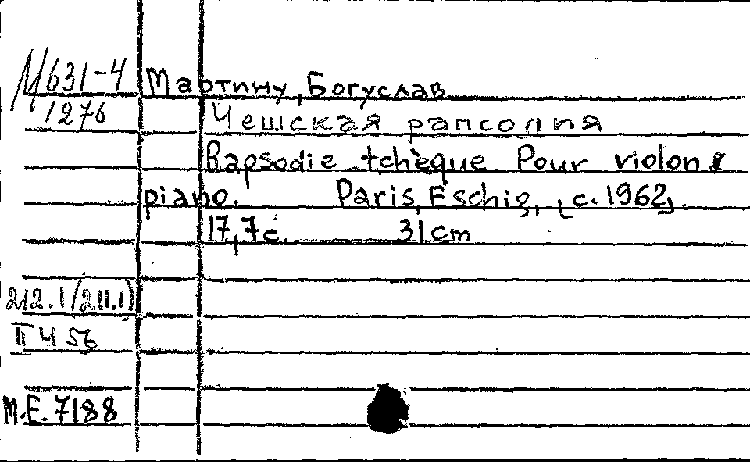 М631-4
1276
Мартину, Богуслав
Чешская рапсодия
Rapsodie tchèque Pour violon &
piano. Paris, Eschig, [c. 1962]
17, 7c. 31cm
212.1/(211.1)
II Ч 56
М.Е. 7188